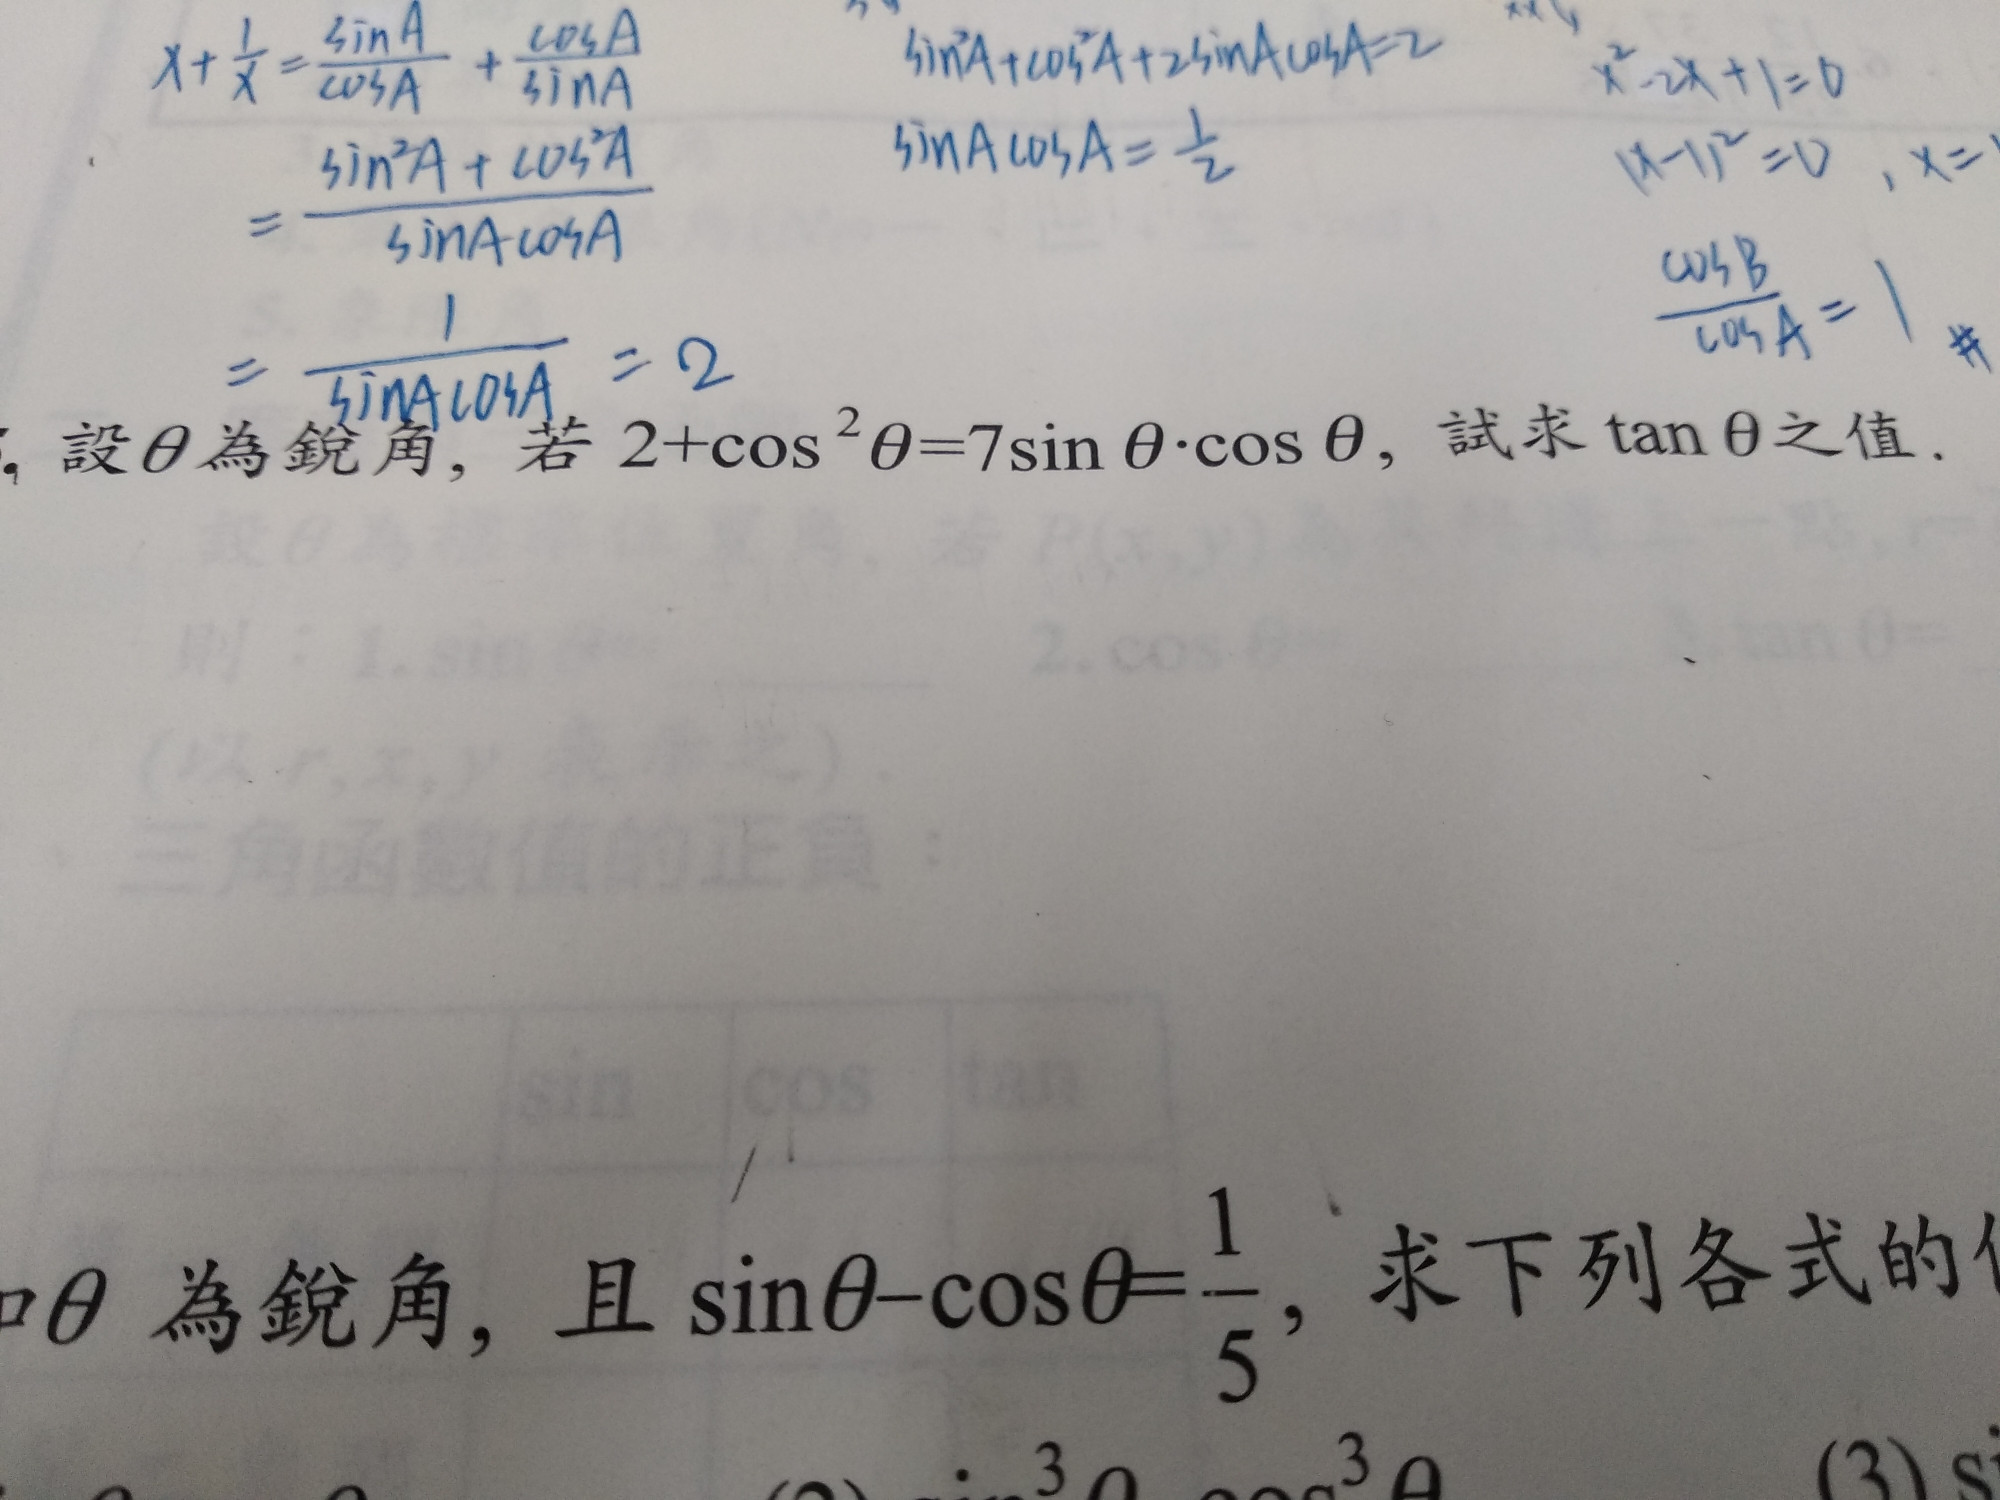 x+1/x=sinA/cosA+cosA/sinA
=sin²A+cos²A/sinAcosA
=1/sinAcosA=2
sin²A+cos²A+2sinAcosA=2
sinAcosA=1/2
x²-2x+1=0
(x-1)²=0,x=1
cosB/cosA=1#
設θ為銳角,若2+cos²θ=7sinθ·cosθ,試求tanθ之值.
設θ為標準位置角,若P(x,y)為其終邊上一點,r=
則:1.sinθ= 2.cosθ= 3.tanθ=
(以r,x,y表示之).
三角函數值的正負:
sin cos tan
θ為銳角,且sinθ-cosθ=1/5,求下列各式的
(2)sin³θ cos³θ (3)si